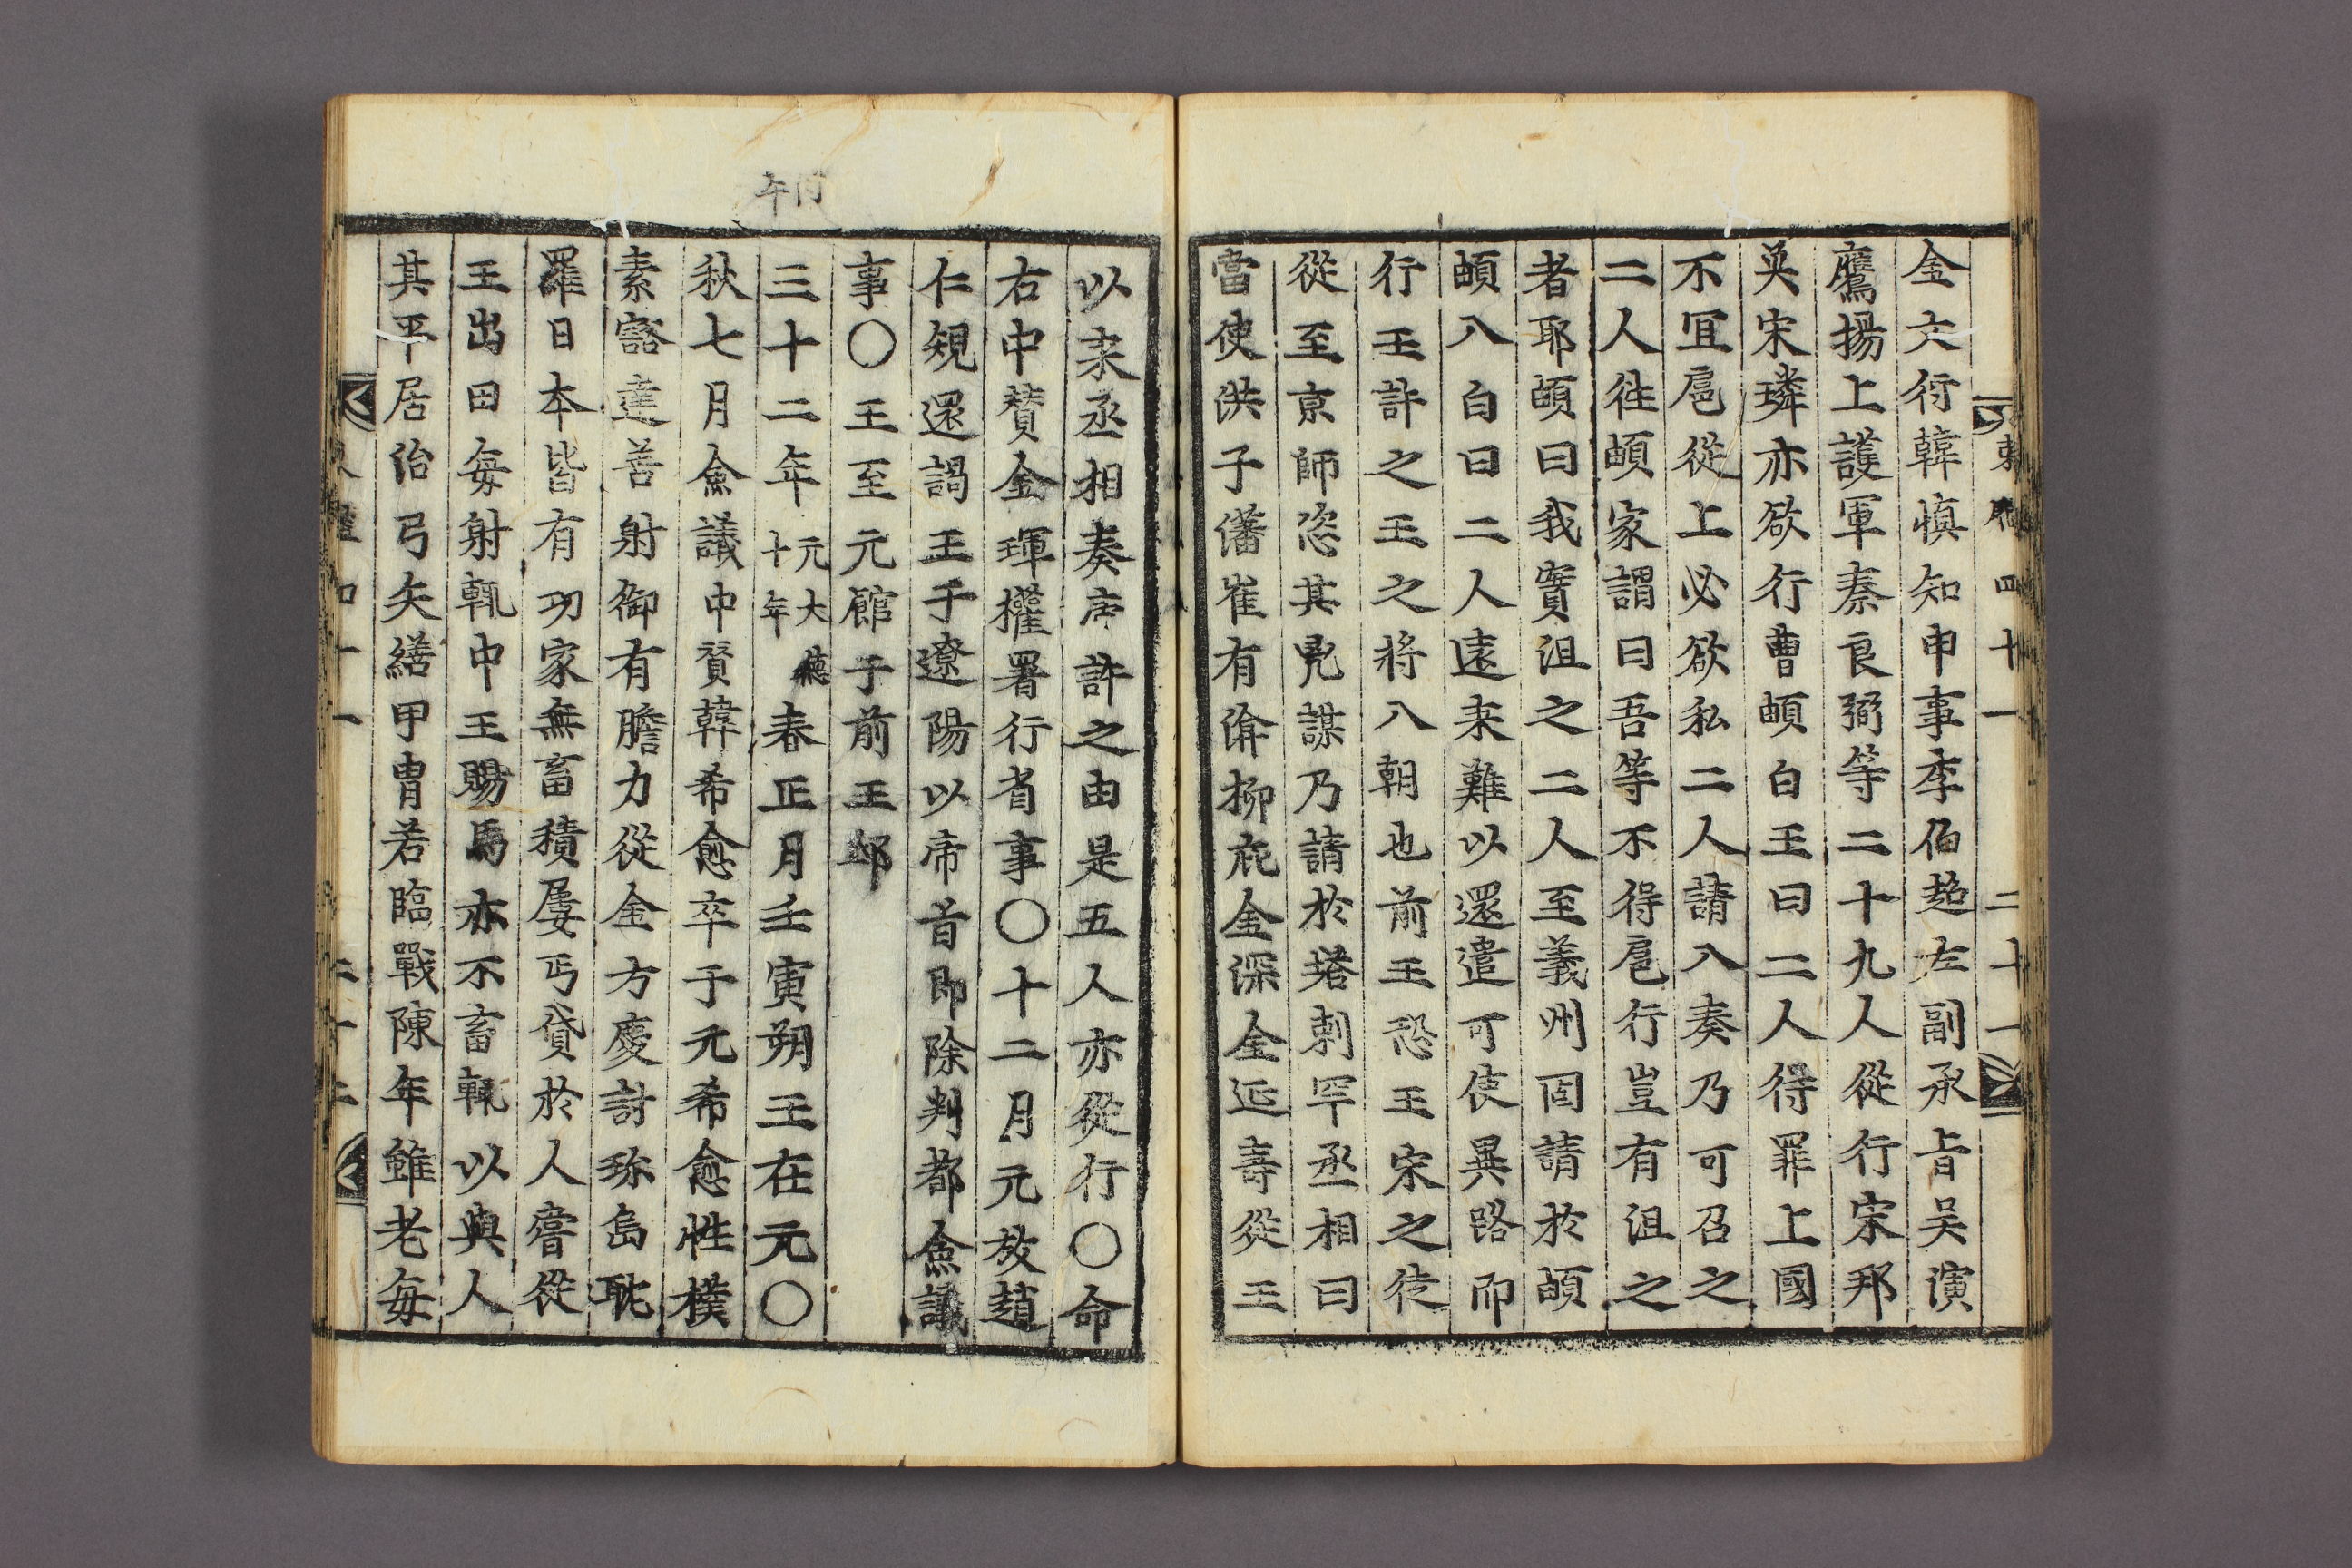 東國 四十一 二十一
金六衍韓愼知申事季伯超左副承旨吴演
鷹揚上護軍秦良弼等二十九人從行宋邦
英宋璘亦欲行曹頔白王曰二人得罪上國
不宜扈從上必欲私二人請入奏乃可召之
二人徃頔家謂曰吾等不得扈行豈有沮之
者耶頔曰我實沮之二人至義州固請於頔
頔入白曰二人遠来難以還遣可使異路而
行王許之王之將入朝也前王恐王宋之徒
從至京師恣其兇謀乃請於塔剌罕丞相曰
當使洪子藩崔有渰柳庇金深金延壽從王
以来丞相奏帝許之由是五人亦從行○命
右中贊金琿權署行省事○十二月元放趙
仁規還謁王于遼陽以帝旨即除判都僉議
事○王至元館于前王邸
丙午
三十二年元大德十年春正月壬寅朔王在元○
秋七月僉議中贊韓希愈卒于元希愈性樸
素豁達善射御有膽力從金方慶討珍島耽
羅日本皆有功家無畜積屢丐貸於人嘗從
王出田每射輒中王賜馬亦不畜輒以與人
其平居治弓矢繕甲胄若臨戰陳年雖老每
四十一 二十二